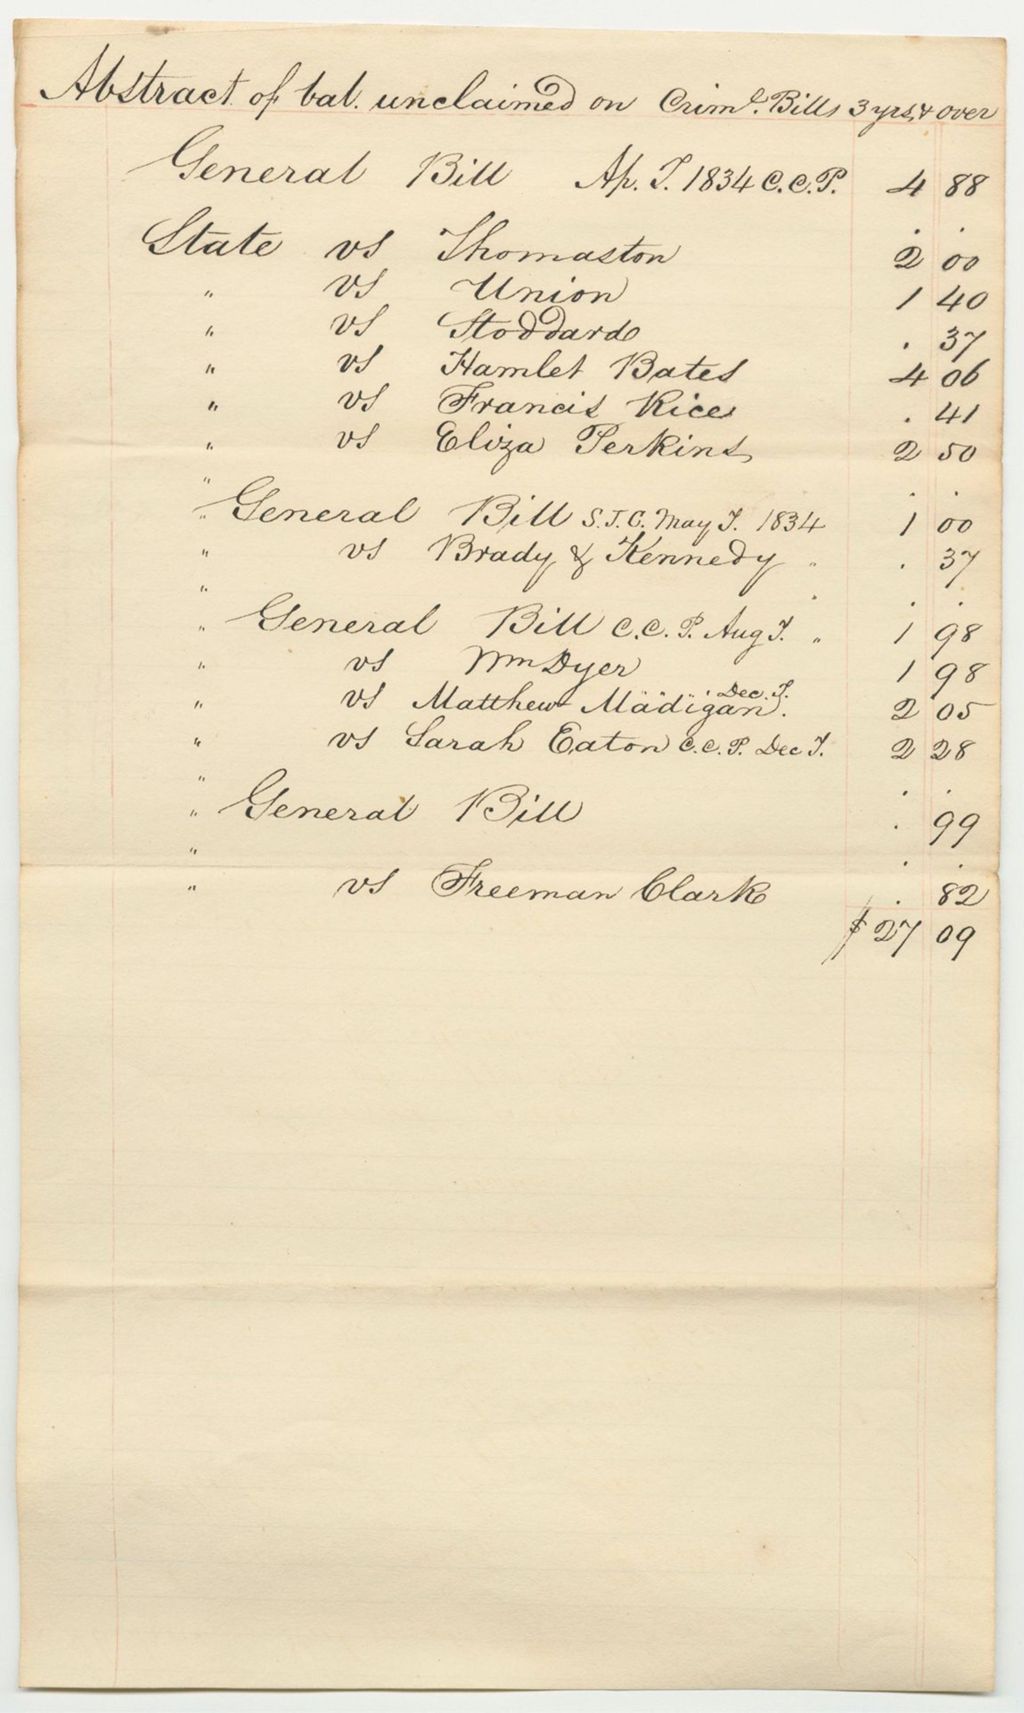 Abstract of bal. unclaimed on Criml. Bills 3 yrs & over
General Bill Ap. T. 1834 C.C.P. 4 88
State vs Thomaston 2 00
" vs Union 1 40
" vs Stoddard . 37
" vs Hamlet Bates 4 06
" vs Francis Rice . 41
" vs Eliza Perkins 2 50
" . .
" General Bill S.J.C. May T. 1834 1 00
" vs Brady & Kennedy " . 37
" " . .
" General Bill C.C.P. Aug T. " 1 98
" vs Wm Dyer 1 98
" vs Matthew Madigan Dec. T. 2 05
" vs Sarah Eaton C.C.P. Dec T. 2 28
" . .
" General Bill . 99
" . .
" vs Freeman Clark . 82
$ 27 09